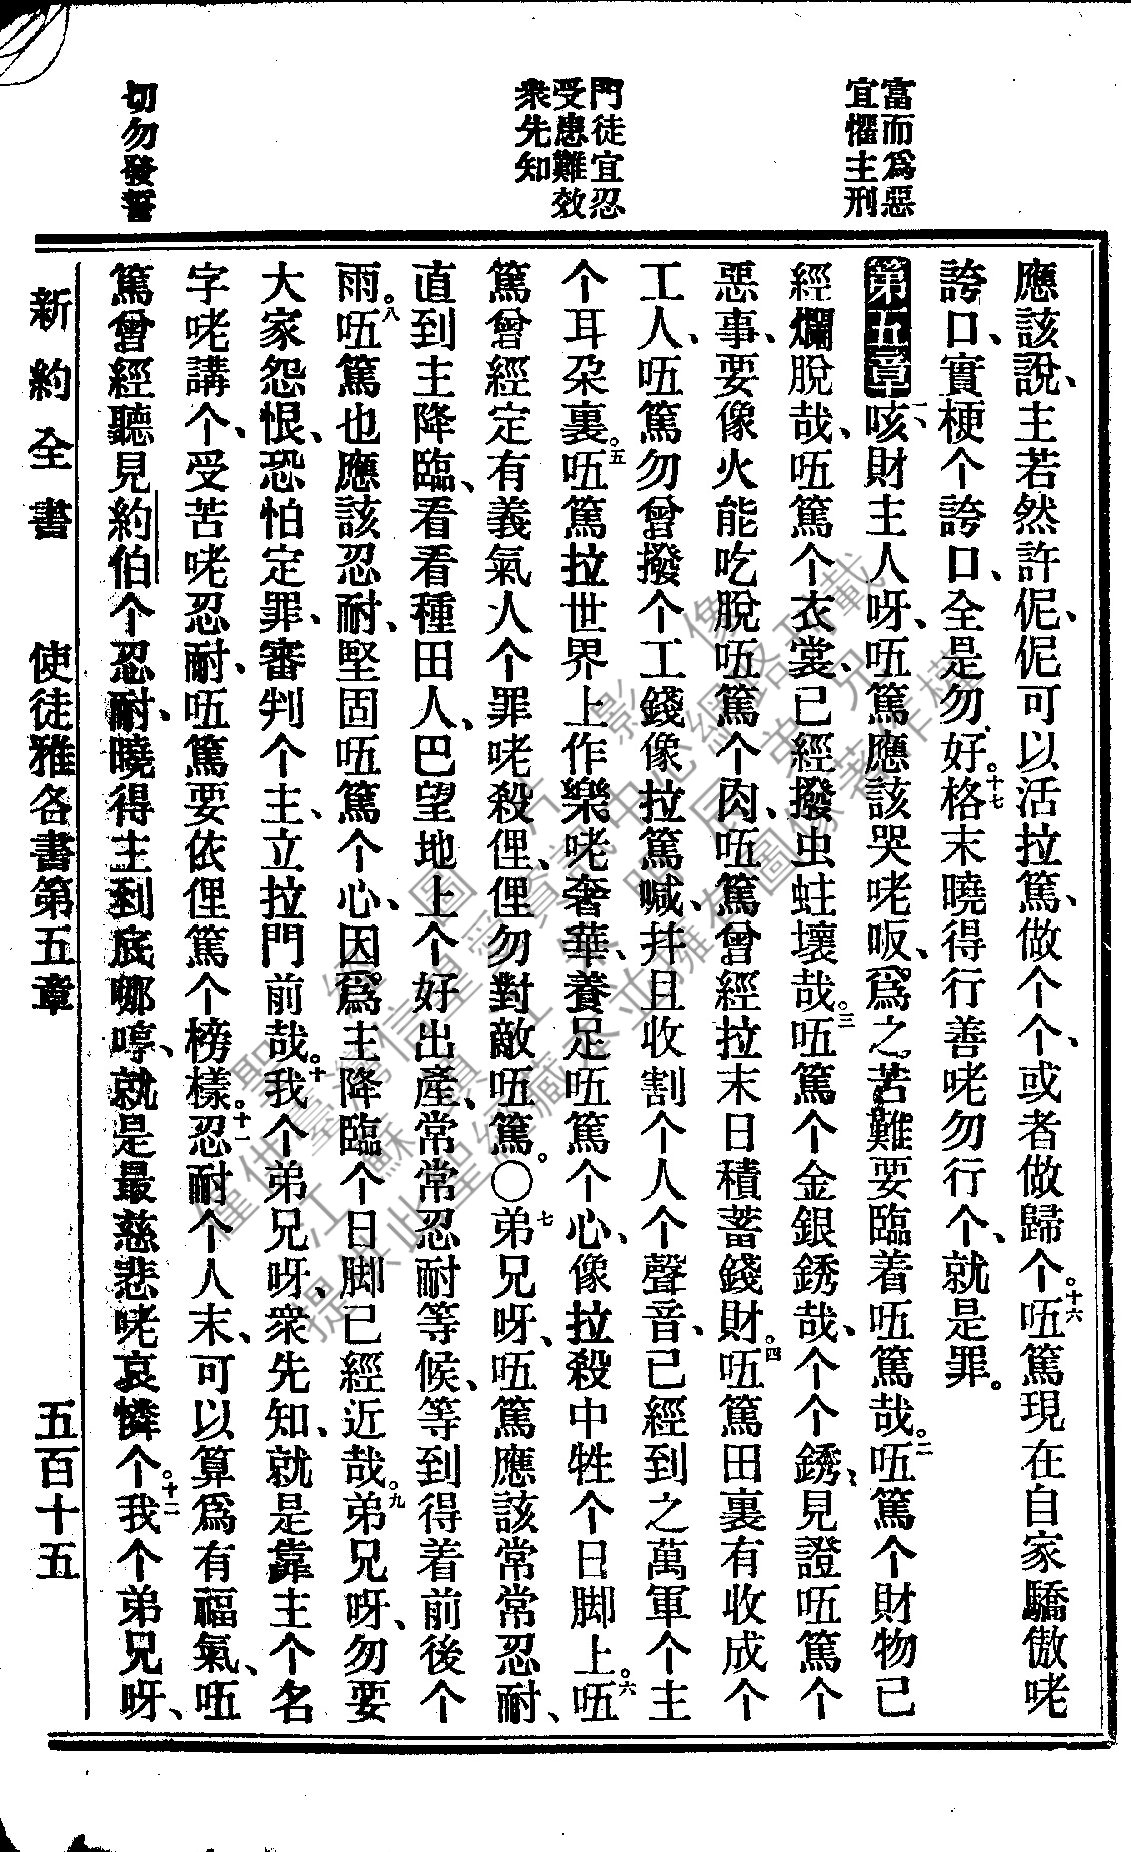 富而爲惡
宜懼主刑
門徒宜忍
受患難效
衆先知
切勿發誓
應該說、主若然許伲、伲可以活拉篤、做个个、或者做歸个。十六㑚篤現在自家驕傲咾
誇口、實梗个誇口、全是勿好。十七格末曉得行善咾勿行个、就是罪。
第五章一、咳財主人呀、㑚篤應該哭咾㖕、爲之苦難要臨着㑚篤哉。二㑚篤个財物已
經爛脫哉、㑚篤个衣裳、已經撥虫蛀壞哉。三㑚篤个金銀銹哉、个个銹、見證㑚篤个
惡事、要像火能吃脫㑚篤个肉、㑚篤曾經拉末日積蓄錢財。四㑚篤田裏有收成个
工人、㑚篤勿曾撥个工錢像拉篤喊、幷且收割个人个聲音、已經到之萬軍个主
个耳朶裏。五㑚篤拉世界上作樂咾奢華、養足㑚篤个心、像拉殺中牲个日脚上。六㑚
篤曾經定有義氣人个罪咾殺俚、俚勿對敵㑚篤。〇七弟兄呀、㑚篤應該常常忍耐、
直到主降臨、看看種田人、巴望地上个好出產、常常忍耐等候、等到得着前後个
雨。八㑚篤也應該忍耐、堅固㑚篤个心、因爲主降臨个日脚已經近哉。九弟兄呀、勿要
大家怨恨、恐怕定罪、審判个主、立拉門前哉。十我个弟兄呀、衆先知、就是靠主个名
字咾講个、受苦咾忍耐、㑚篤要依俚篤个榜樣。十一忍耐个人末、可以算爲有福氣、㑚
篤曾經聽見約伯个忍耐、曉得主到底哪哼、就是最慈悲咾哀憐个。十二我个弟兄呀、
新約全書　使徒雅各書第五章　五百十五
聖經圖片影像
僅供臺灣信望愛資訊中心網路刊載
江蘇　吳紅　勝居　弟兄
提供此聖經藏本並擁有圖像著作權